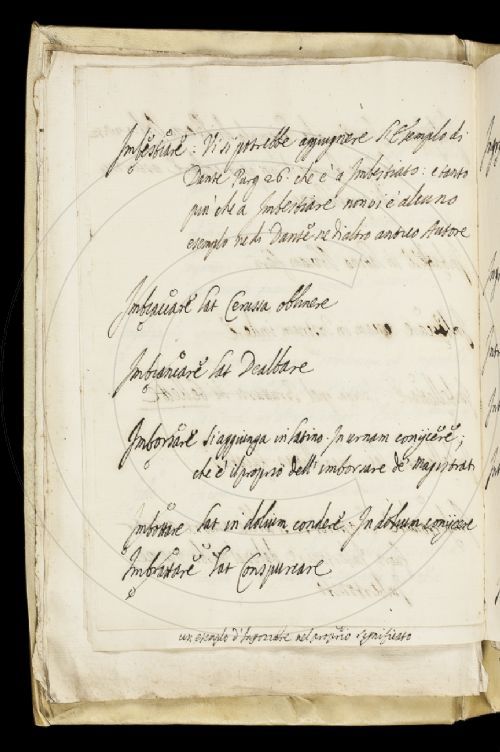 Imbestiare: Vi si potrebbe aggiugnere l'Esempio di
Dante Purg 26. che è a Imbestiato: e tanto
piu che a Imbestiare non vi è alcuno
esempio ne di Dante ne d'altro antico Autore
Imbiaccare lat Cerussa oblinere
Imbiancare lat Dealbare
Imborsare si aggiunga in latino In urnam conijcere;
che è il proprio dell'imborsare de Magistrati
Imbottare lat in dolium condere. In dolium conijcere
Imbrattare lat Conspurcare
un esempio d' nel proprio significato